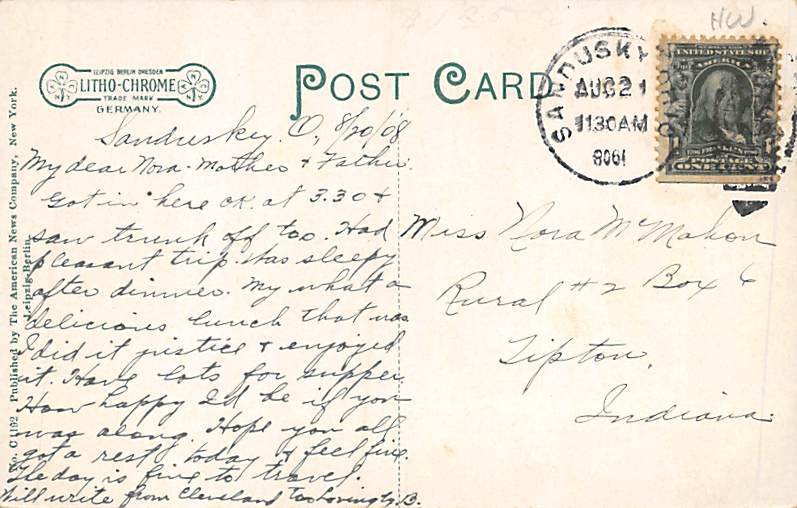 HW.
LEIPZIG BERLIN DRESDEN
LITHO-CHROME
TRADE MARK
GERMANY.
POST CARD
SANDUSKY
OHIO
AUG 21
1130 AM
UNITED STATES OF
AMERICA
POSTAGE
ONE CENT
No. C 1192 Published by The American News Company, New York.
Leipzig-Berlin
Sandusky, O, 8/20/08
My dear Nora - Mother & Father.
Got in here OK. at 3.30 &
saw trunk off too. Had
pleasant trip. Was sleepy
after dinner. My what a
delicious lunch that was
I did it justice & enjoyed
it. Have lots for supper.
How happy I'd be if you
was along. Hope you all
got a rest today & feel fine.
The day is fine to travel.
Will write from Cleveland Too Lovingly, B.
Miss Nora McMahon
Rural #2 Box 6
Tipton,
Indiana.